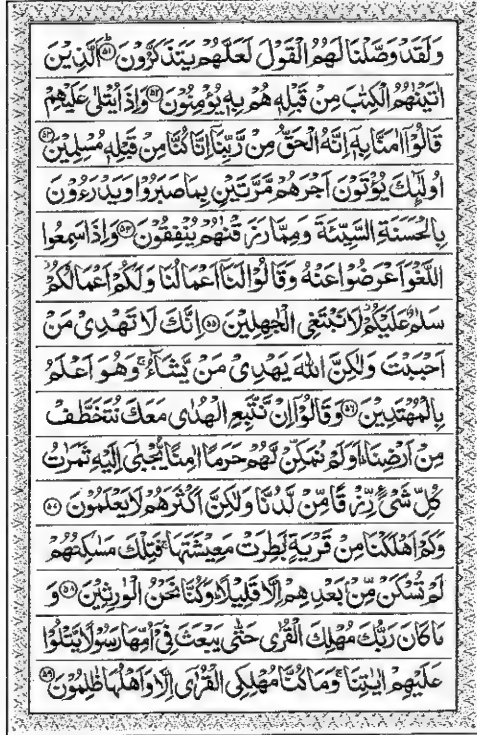 وَلَقَدْ وَصَّلْنَا لَهُمُ الْقَوْلَ لَعَلَّهُمْ يَتَذَكَّرُوْنَ ﴿۵۱﴾ اَلَّذِيْنَ
اٰتَيْنٰهُمُ الْكِتٰبَ مِنْ قَبْلِهٖ هُمْ بِهٖ يُؤْمِنُوْنَ ﴿۵۲﴾ وَاِذَا يُتْلٰى عَلَيْهِمْ
قَالُوْٓا اٰمَنَّا بِهٖٓ اِنَّهُ الْحَقُّ مِنْ رَّبِّنَآ اِنَّا كُنَّا مِنْ قَبْلِهٖ مُسْلِمِيْنَ ﴿۵۳﴾
اُولٰٓئِكَ يُؤْتَوْنَ اَجْرَهُمْ مَّرَّتَيْنِ بِمَا صَبَرُوْا وَيَدْرَءُوْنَ
بِالْحَسَنَةِ السَّيِّئَةَ وَمِمَّا رَزَقْنٰهُمْ يُنْفِقُوْنَ ﴿۵۴﴾ وَاِذَا سَمِعُوا
اللَّغْوَ اَعْرَضُوْا عَنْهُ وَقَالُوْا لَنَآ اَعْمَالُنَا وَلَكُمْ اَعْمَالُكُمْ
سَلٰمٌ عَلَيْكُمْ لَا نَبْتَغِى الْجٰهِلِيْنَ ﴿۵۵﴾ اِنَّكَ لَا تَهْدِىْ مَنْ
اَحْبَبْتَ وَلٰكِنَّ اللّٰهَ يَهْدِىْ مَنْ يَّشَآءُ وَهُوَ اَعْلَمُ
بِالْمُهْتَدِيْنَ ﴿۵۶﴾ وَقَالُوْٓا اِنْ نَّتَّبِعِ الْهُدٰى مَعَكَ نُتَخَطَّفْ
مِنْ اَرْضِنَا اَوَلَمْ نُمَكِّنْ لَّهُمْ حَرَمًا اٰمِنًا يُّجْبٰٓى اِلَيْهِ ثَمَرٰتُ
كُلِّ شَىْءٍ رِّزْقًا مِّنْ لَّدُنَّا وَلٰكِنَّ اَكْثَرَهُمْ لَا يَعْلَمُوْنَ ﴿۵۷﴾
وَكَمْ اَهْلَكْنَا مِنْ قَرْيَةٍ بَطِرَتْ مَعِيْشَتَهَا فَتِلْكَ مَسٰكِنُهُمْ
لَمْ تُسْكَنْ مِّنْ بَعْدِهِمْ اِلَّا قَلِيْلًا وَكُنَّا نَحْنُ الْوٰرِثِيْنَ ﴿۵۸﴾ وَ
مَا كَانَ رَبُّكَ مُهْلِكَ الْقُرٰى حَتّٰى يَبْعَثَ فِىْٓ اُمِّهَا رَسُوْلًا يَّتْلُوْا
عَلَيْهِمْ اٰيٰتِنَا وَمَا كُنَّا مُهْلِكِى الْقُرٰٓى اِلَّا وَاَهْلُهَا ظٰلِمُوْنَ ﴿۵۹﴾